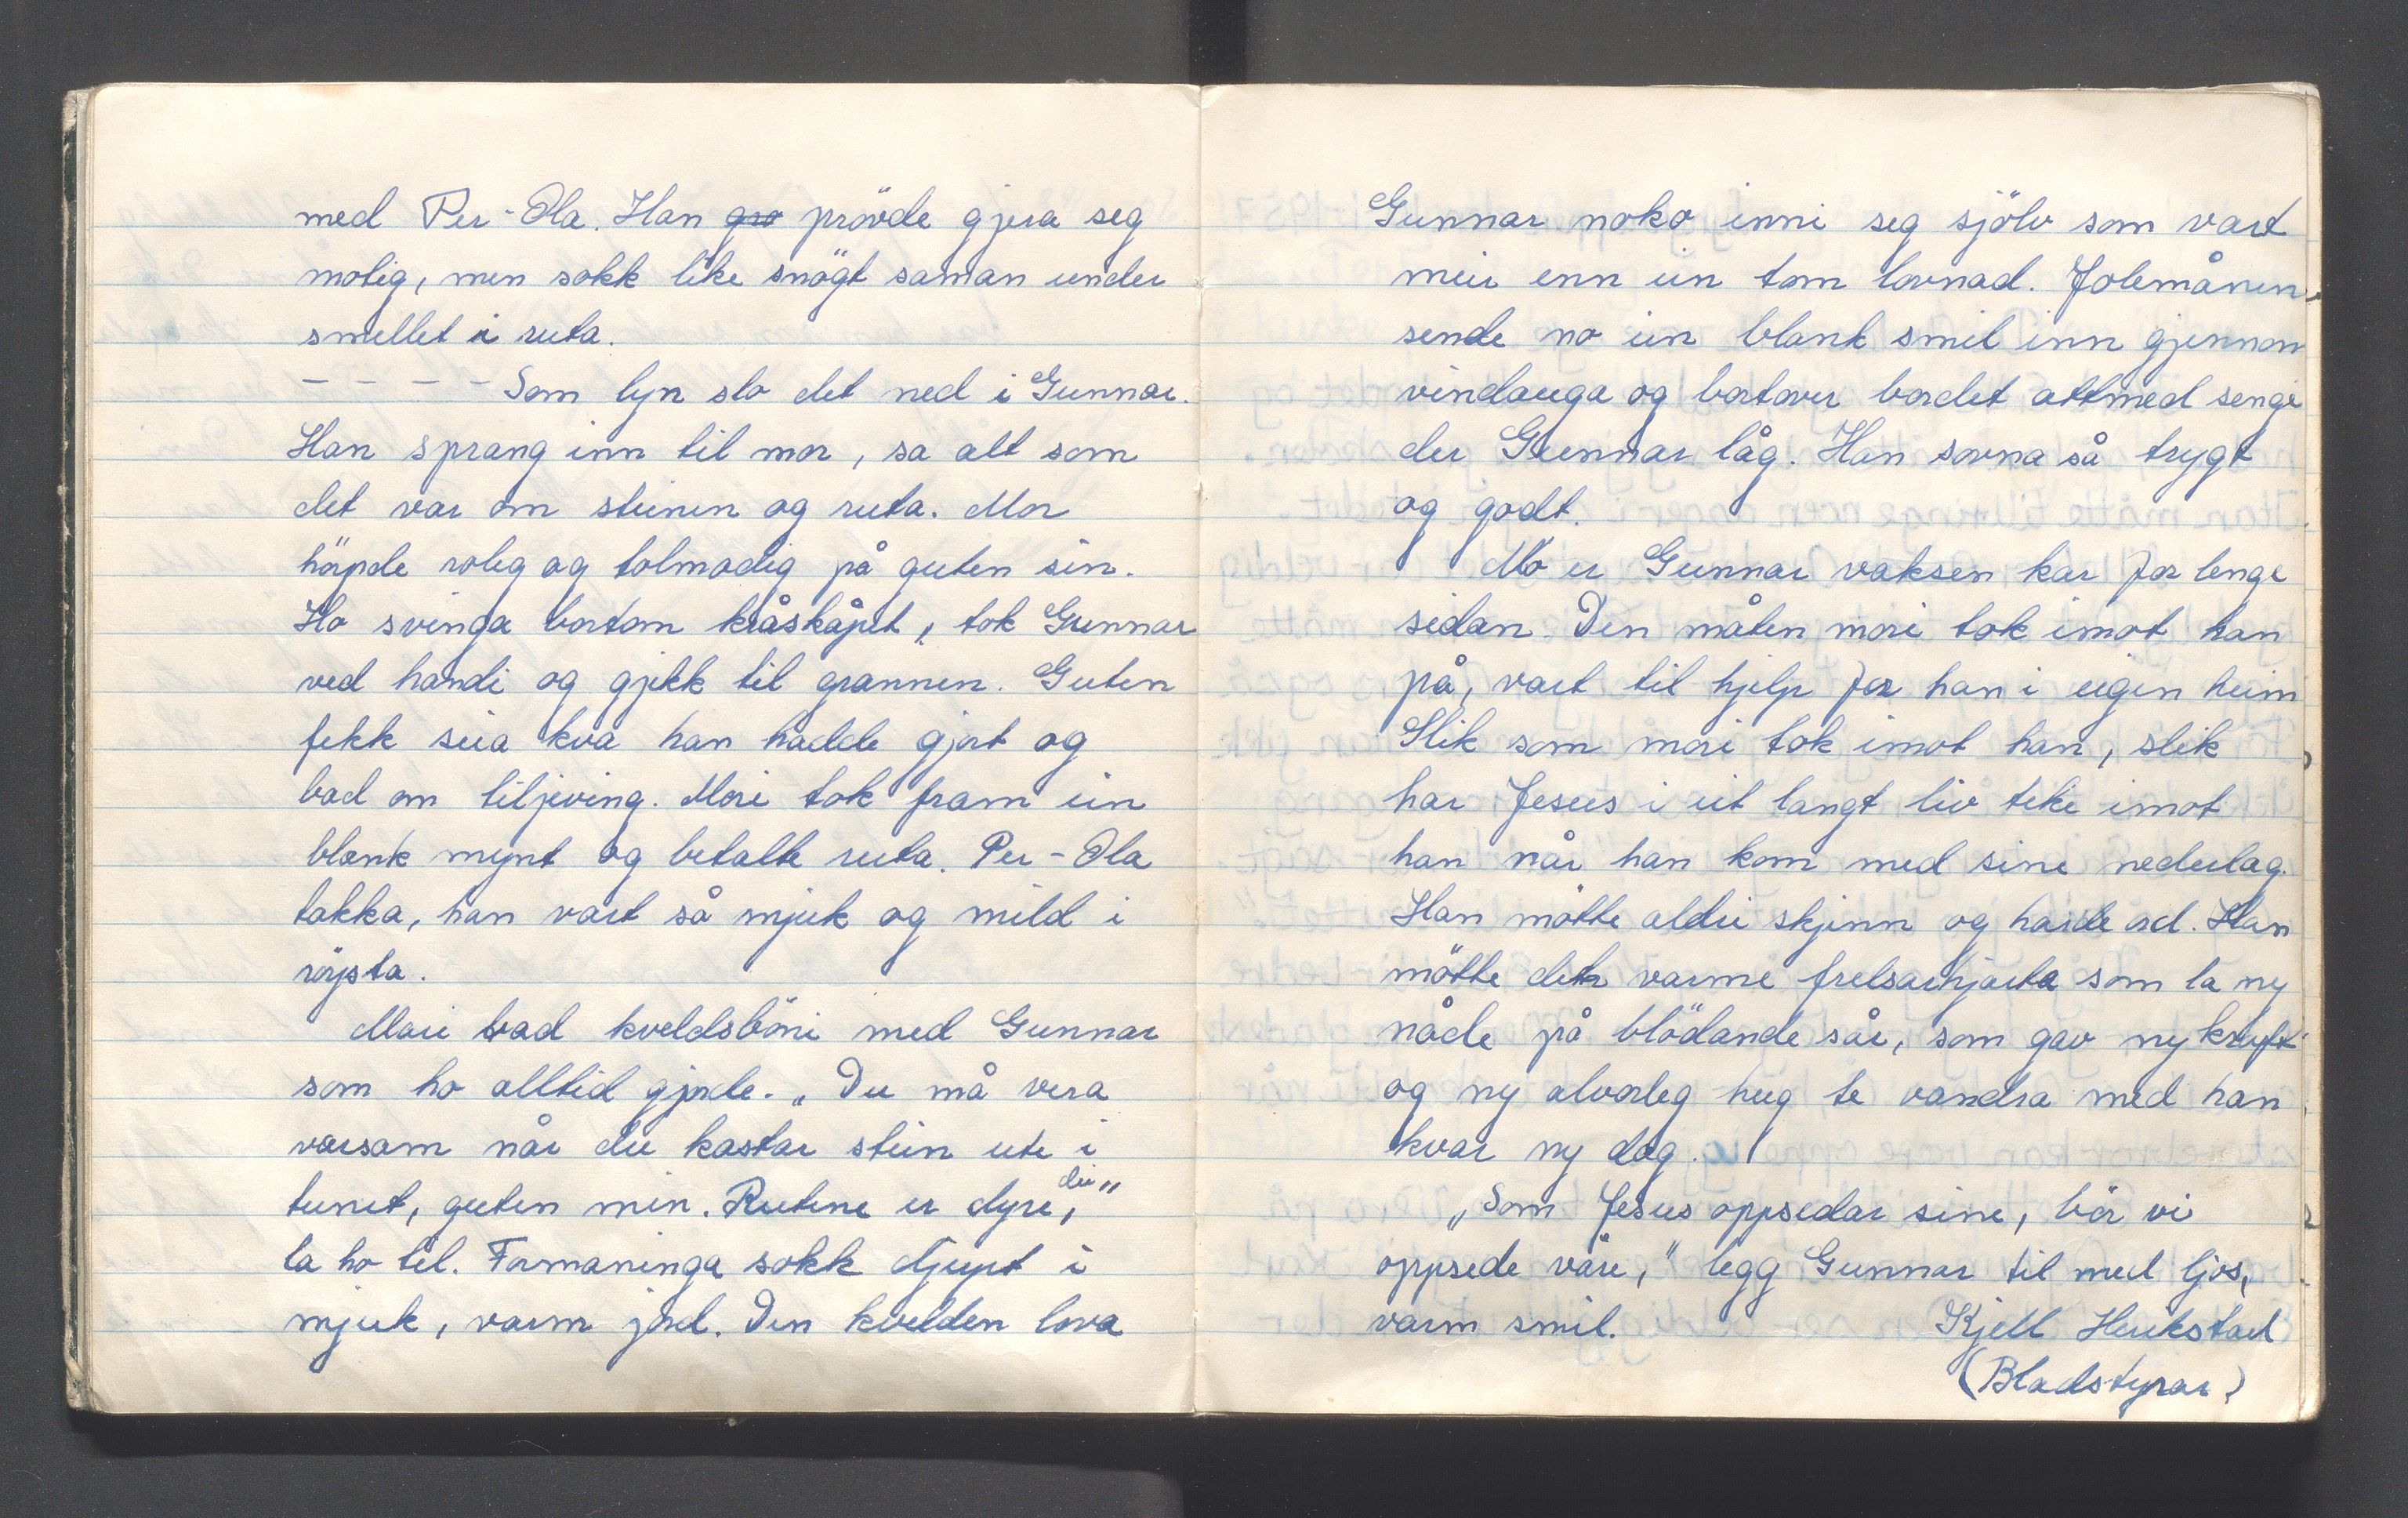 med Per-Ola. Han gro prövde gjera seg
molig, men sokk like snögt saman under
smellet i ruta.
- - - - Som lyn slo det ned i Gunnar.
Han sprang inn til mor, sa alt som
det var om steinen og ruta. Mor
höyrde roleg og tolmodig på guten sin.
Ho svinga bortom kråskåpet, tok Gunnar
ved handi og gjekk til grannen. Guten
fekk seia kva han hadde gjort og
bad om tilgjeving. Mori tok fram ein
blank mynt og betalte ruta. Per-Ola
takka, han vart så mjuk og mild i
röysta.
Mori bad kveldsböni med Gunnar
som ho alltid gjorde. „Du må vera
varsam når du kastar stein ute i
tunet, guten min. Rutene er dyre, du"
la ho til. Formaninga sokk djupt i
mjuk, varm jord. Den kvelden lova
Gunnar noko inni seg sjölv som vart
meir enn ein tom lovnad. Jolemånen
sende no ein blank smil inn gjennom
vindauga og bortover bordet attmed senge
der Gunnar låg. Han sovna så trygt
og godt.
No er Gunnar vaksen kar for lenge
sidan. Den måten mori tok imot han
på, vart til hjelp for han i eigen heim
Slik som mori tok imot han, slik
har Jesus i eit langt liv teke imot
han når han kom med sine nederlag.
Han mötte aldri skjenn og harde ord. Han
mötte det varme frelsarhjarta som la ny
nåde på blödande sår, som gav ny kraft
og ny alvorleg hug te vandra med han
kvar ny dag.
„Som Jesus oppsedar sine, bör vi
oppsede våre," legg Gunnar til med ljos,
varm smil. Kjell Heikstad
(Bladstyrar)